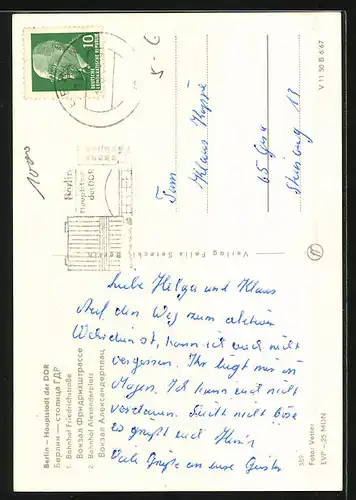 10
DEUTSCHE
DEMOKRATISCHE REPUBLIK
5-6
V 11 50 B 6/67
1000
Berlin
Hauptstadt
der DDR
Fam
Klaus
65 Gera
13
Verlag Felix Setecki, Berlin
Liebe Helga und Klaus
Auf den Weg zum aktiven
ist, kann ich euch nicht
vergessen. Ihr liegt mir im
Magen. Ich kann euch nicht
nicht böse
es grüßt euch
Viele Grüße an eure
Berlin – Hauptstadt der DDR
Берлин — столица ГДР
1. Bahnhof Friedrichstraße
Вокзал Фридрихштрассе
2. Bahnhof Alexanderplatz
Вокзал Александерплац
359
Foto: Vetter
EVP –,25 MDN